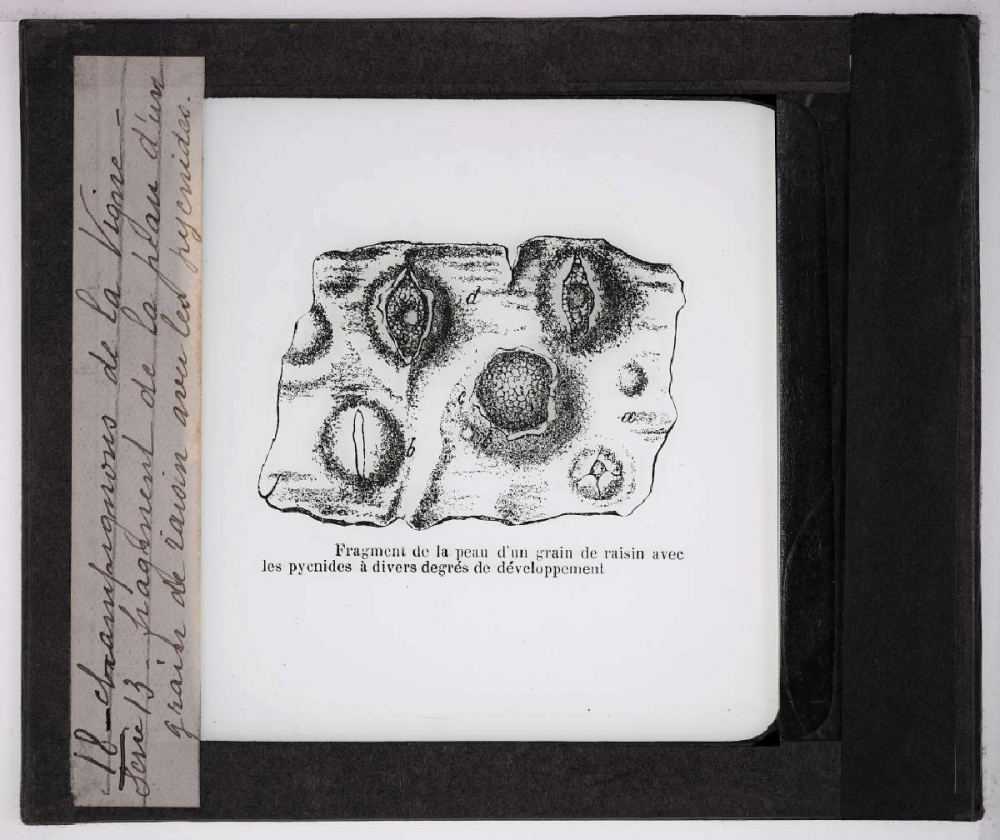 18 - champignons de la Vigne -
Serie 13 - fragment de la peau d'un
grain de raisin avec les pycnides.
d
c
a
b
b
Fragment de la peau d'un grain de raisin avec
les pycnides à divers degrés de développement